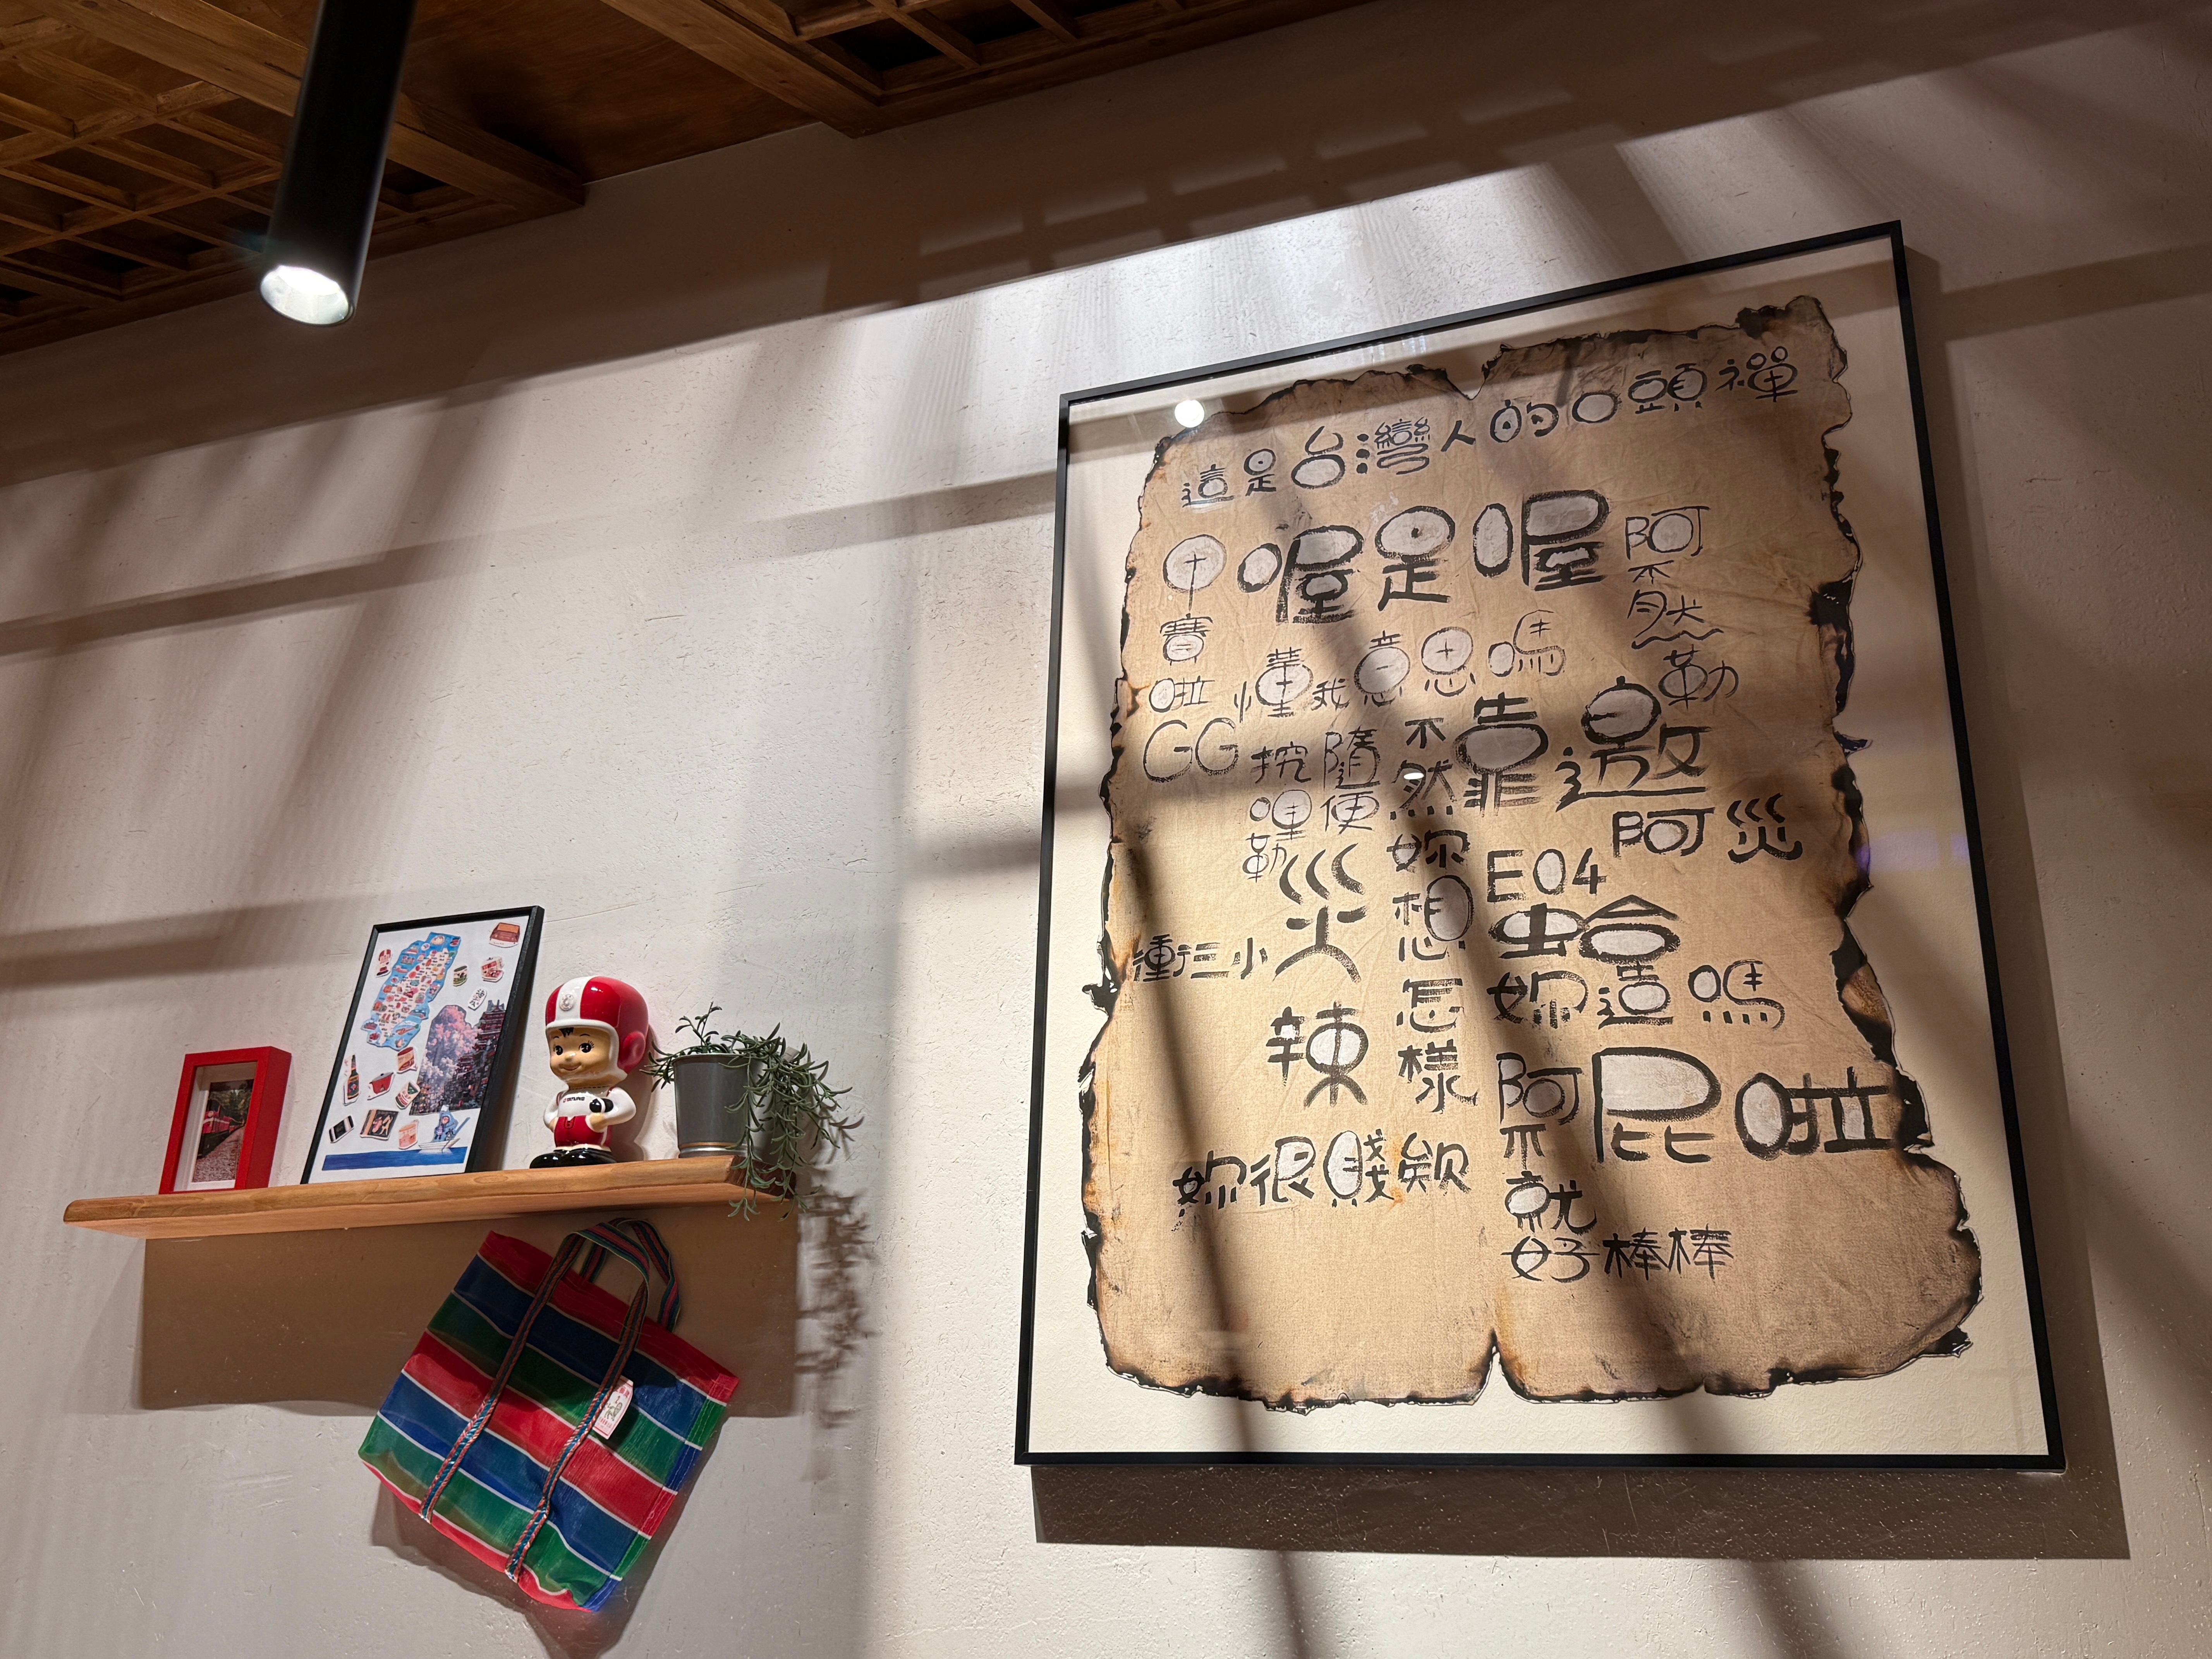 這是台灣人的口頭禪
喔是喔
阿不然勒
中賽啦
懂我意思嗎
GG
挖哩勒
隨便
不然妳想怎樣
靠邀
阿災
E04
災
蛤
衝三小
妳造嗎
辣
阿不就好棒棒
屁啦
妳很賤欸